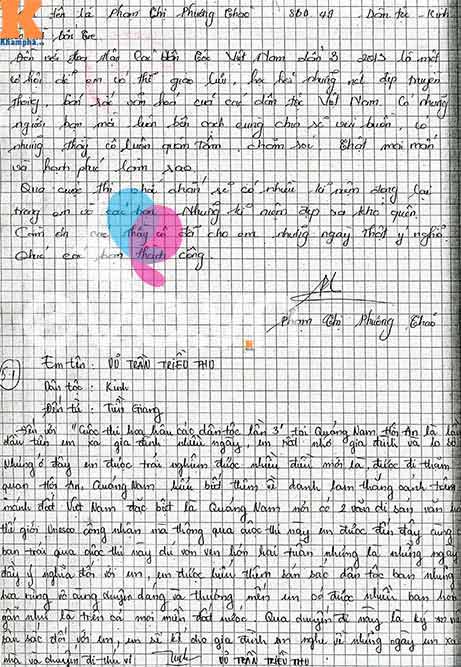 tên là Phạm Thị Phương Thảo SBD 49 Dân tộc - Kinh
Khampha.vn
Đến với Hoa Hậu Các Dân tộc Việt Nam lần 3 2013 là một
cơ hội để em có thể giao lưu, học hỏi những nét đẹp truyền
thống, bản sắc văn hoá của các dân tộc Việt Nam. Có những
người bạn mới luôn bên cạnh cùng chia sẻ vui buồn, có
những thầy cô luôn quan tâm, chăm sóc. Thật may mắn
và hạnh phúc làm sao.
Qua cuộc thi phải chắc sẽ có nhiều kỉ niệm đọng lại
trong em và các bạn. Những kỉ niệm đẹp và khó quên.
Cảm ơn các thầy cô đã cho em những ngày thật ý nghĩa.
Chúc các bạn thành công.
Phạm Thị Phương Thảo
51
Em tên : VÕ TRẦN TRIỀU THU
Dân tộc : Kinh
Đến từ : Tiền Giang
Đến với "Cuộc thi hoa hậu các dân tộc lần 3" tại Quảng Nam Hội An là lần
đầu tiên em xa gia đình nhiều ngày, em rất nhớ gia đình và
Nhưng ở đây em được trải nghiệm được nhiều điều mới lạ, được đi tham
quan Hội An, Quảng Nam hiểu biết thêm về danh lam thắng cảnh trên
mảnh đất Việt Nam đặc biệt là Quảng Nam nơi có 2 văn di sản văn hoá
thế giới Unesco công nhận mà thông qua cuộc thi này em được đến đây cùng
bạn trải qua cuộc thi này dù vỏn vẹn hơn hai tuần nhưng là những ngày
đầy ý nghĩa đối với em, em được hiểu thêm bản sắc dân tộc bạn những
vô cùng duyên dáng và thương mến em có được nhiều bạn hơn
gần như là trên cả mọi miền đất nước. Qua chuyến đi này là kỷ niệm
sâu sắc đối với em, em sẽ kể cho gia đình em nghe về những ngày em xa
nhà và chuyến đi thú vị VÕ TRẦN TRIỀU THU